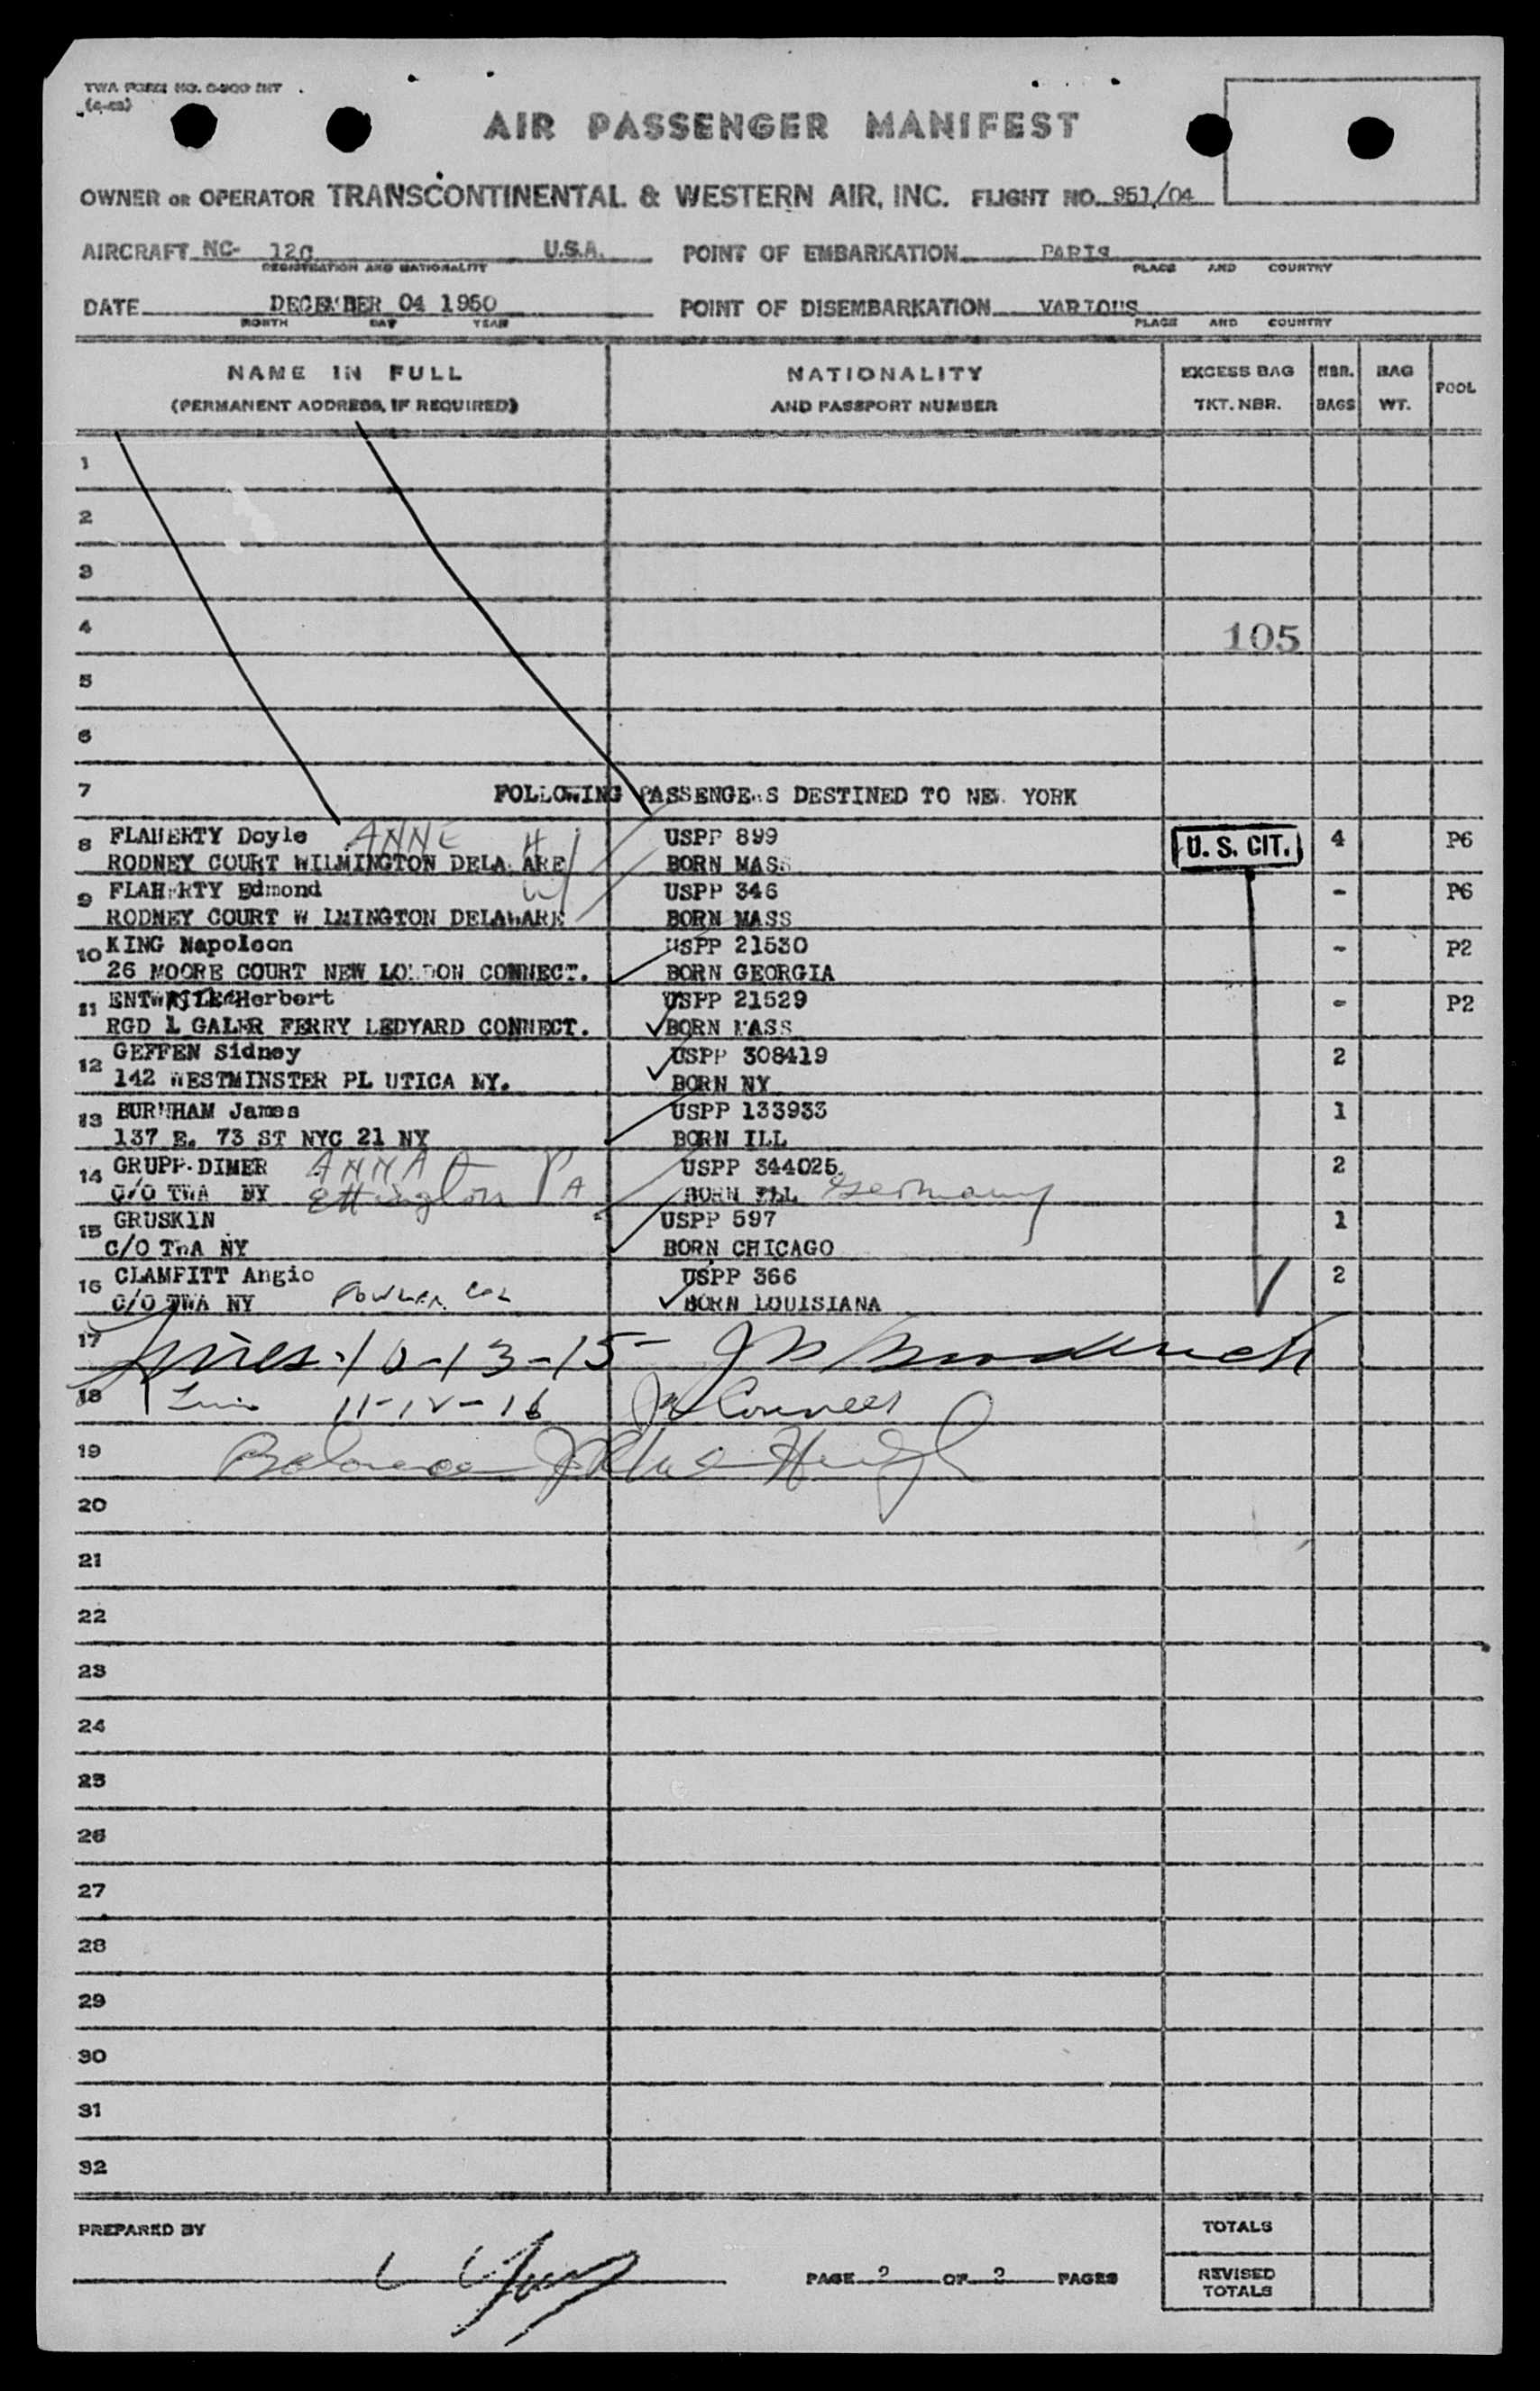 TWA FORM NO. INT
AIR PASSENGER MANIFEST
OWNER OR OPERATOR TRANSCONTINENTAL & WESTERN AIR, INC. FLIGHT NO. 951/04
AIRCRAFT NC- 12 U.S.A. POINT OF EMBARKATION PARIS
REGISTRATION AND NATIONALITY PLACE AND COUNTRY
DATE DECEMBER 04 1950 POINT OF DISEMBARKATION VARIOUS
MONTH DAY YEAR PLACE AND COUNTRY
NAME IN FULL NATIONALITY EXCESS BAG NBR. BAG POOL
(PERMANENT ADDRESS, IF REQUIRED) AND PASSPORT NUMBER TKT. NBR. BAGS WT.
1
2
3
4 105
5
6
7 FOLLOWING PASSENGERS DESTINED TO NEW YORK
8 FLAHERTY Doyle ANNE H USPP 899 U. S. CIT. 4 P6
RODNEY COURT WILMINGTON DELAWARE BORN MASS
9 FLAHERTY Edmond W USPP 346 - P6
RODNEY COURT WILMINGTON DELAWARE BORN MASS
10 KING Napoleon USPP 21530 - P2
26 MOORE COURT NEW LONDON CONNECT. BORN GEORGIA
11 ENTWISTLE Herbert USPP 21529 - P2
RGD 1 GALER FERRY LEDYARD CONNECT. BORN MASS
12 GEFFEN Sidney USPP 308419 2
142 WESTMINSTER PL UTICA NY. BORN NY
13 BURNHAM James USPP 133933 1
137 E. 73 ST NYC 21 NY BORN ILL
14 GRUPP-DIMER ANNA USPP 344025 2
C/O TWA NY Ettington PA BORN ILL Germany
15 GRUSKIN USPP 597 1
C/O TWA NY BORN CHICAGO
16 CLAMPITT Angio USPP 366 2
C/O TWA NY FOWLER, COL BORN LOUISIANA
17 Lines 10-13-15
18 Line 11-12-16
19 Balance
20
21
22
23
24
25
26
27
28
29
30
31
32
PREPARED BY TOTALS
PAGE 2 OF 2 PAGES REVISED
TOTALS